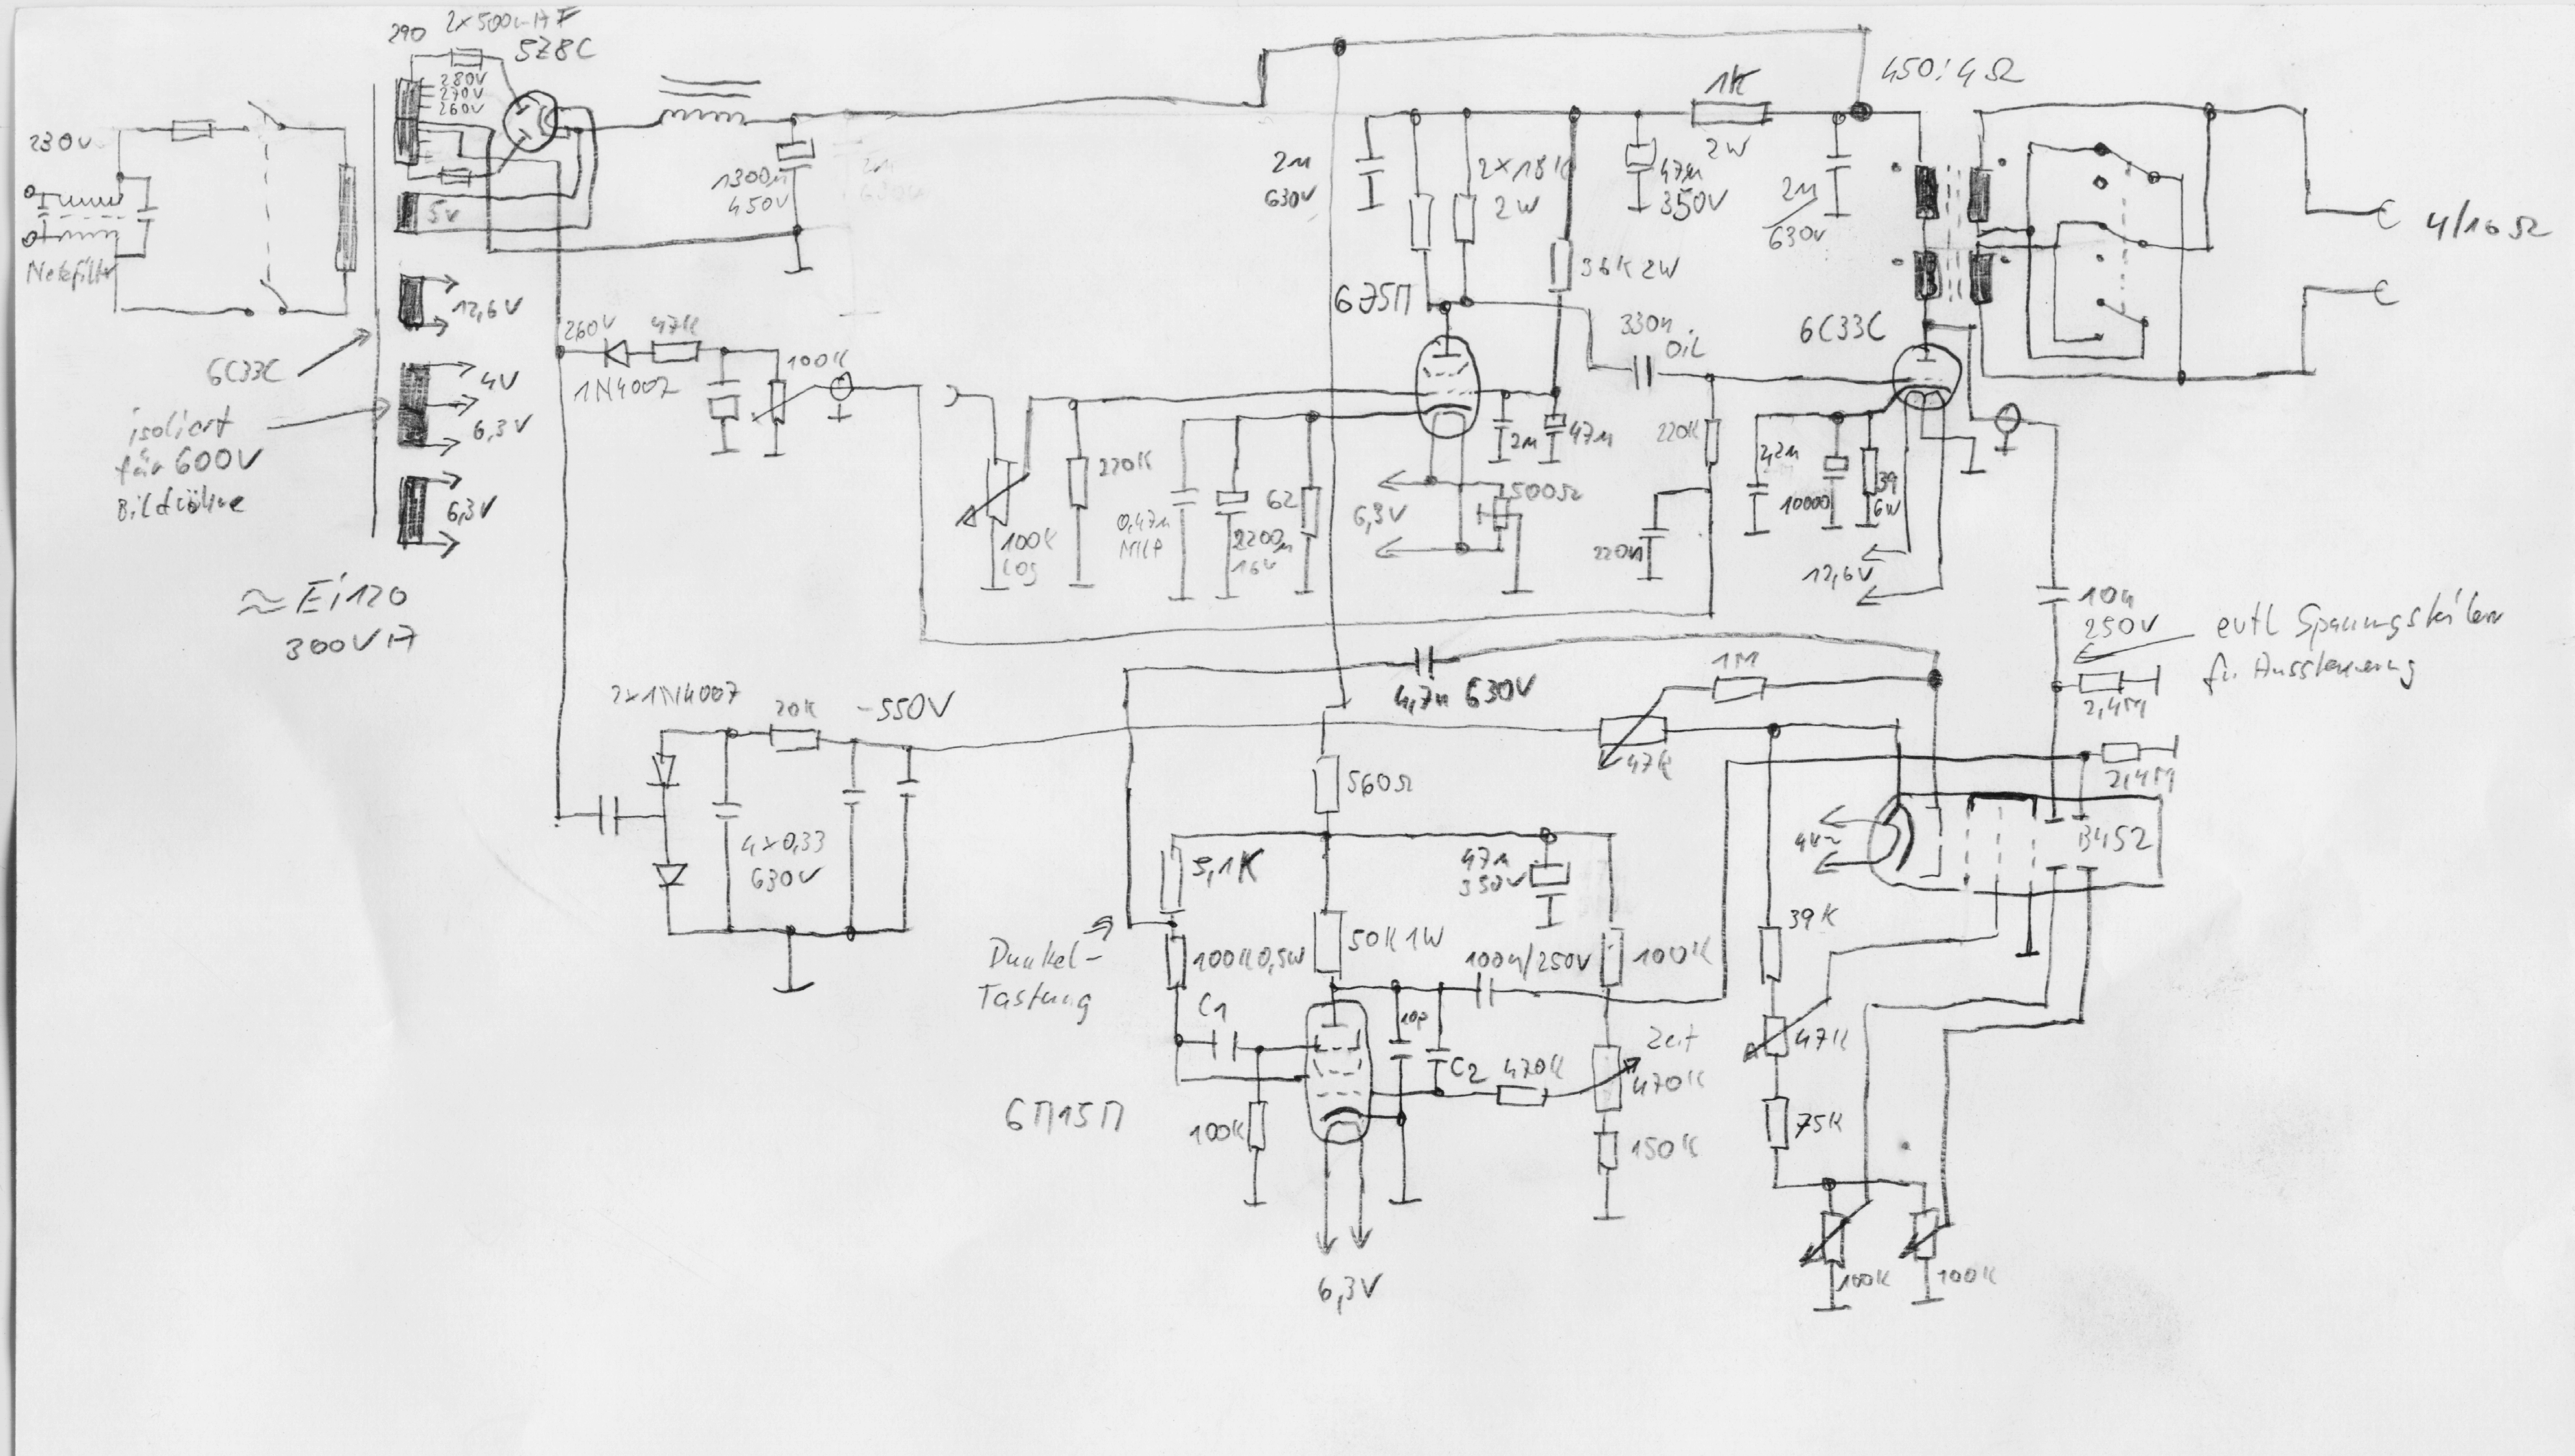 290
2x500mAF
5Z8C
280V
270V
260V
230V
Netzfilter
5V
12,6V
6C33C
4V
6,3V
isoliert
für 600V
Bildröhre
6,3V
≈ Ei120
300VA
1300µ
450V
260V
47K
1N4007
100K
2µ
630V
2x18K
2W
47µ
350V
1K
2W
2µ
630V
450:4Ω
4/16Ω
36K 2W
330n
Oil
6C33C
220K
100K
Log
0,47µ
2200µ
16V
62
6,3V
500Ω
2µ
47µ
220K
220n
10000
39
6W
12,6V
10n
250V
2,4M
2,4M
2x1N4007
20K
-550V
4x0,33
630V
4,7n 630V
1M
47K
560Ω
5,1K
47µ
350V
4V~
B4S2
Dunkel-
Tastung
100K0,5W
50K 1W
100n/250V
100K
39K
C1
10p
C2
470K
Zeit
470K
47K
6П15П
100K
150K
75K
6,3V
100K
100K